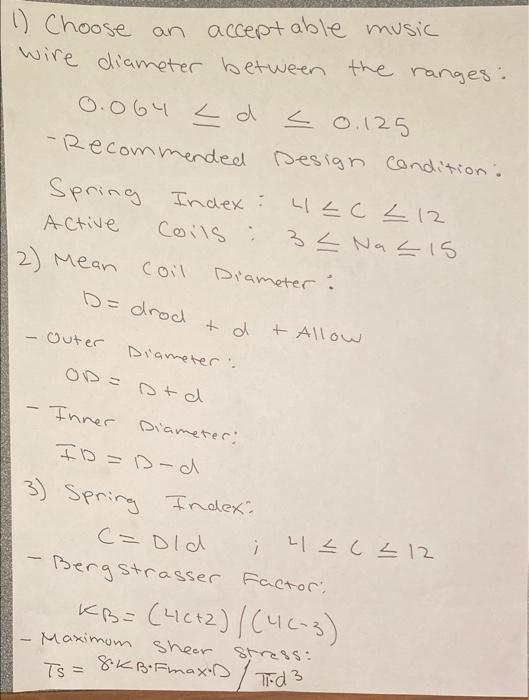 1) Choose an acceptable music
wire diameter between the ranges:
0.064 ≤ d ≤ 0.125
- Recommended Design Condition:
Spring Index: 4 ≤ C ≤ 12
Active Coils: 3 ≤ Na ≤ 15
2) Mean Coil Diameter:
D = drod + d + Allow
- Outer Diameter:
OD = D + d
- Inner Diameter:
ID = D - d
3) Spring Index:
C = D/d ; 4 ≤ C ≤ 12
- Bergstrasser Factor:
KB = (4C+2) / (4C-3)
- Maximum shear stress:
Ts = 8·KB·Fmax·D / π·d³